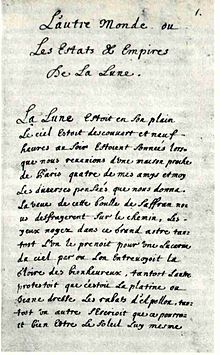 1.
L'autre Monde ou
Les Estats & Empires
De La Lune.
La Lune estoit en son plein
Le ciel estoit descouvert et neuf
heures du soir estoient sonnées lors
que nous revenions d'une maison proche
de Paris quatre de mes amys et moy
Les diverses pensées que nous donna
La veue de cette boulle de saffran nous
desfrayerent sur le chemin, Les
yeux noyez dans ce grand astre tan
tost L'un le prenoit pour une Lucarne
du ciel par ou L'on entrevoyoit la
gloire des bienheureux, tantost L'autre
protestoit que c'estoit La platine ou
Diane dresse Les rabats d'Apollon, tan
tost un autre s'escrioit que ce pourroit
et bien estre Le soleil Luy mesme